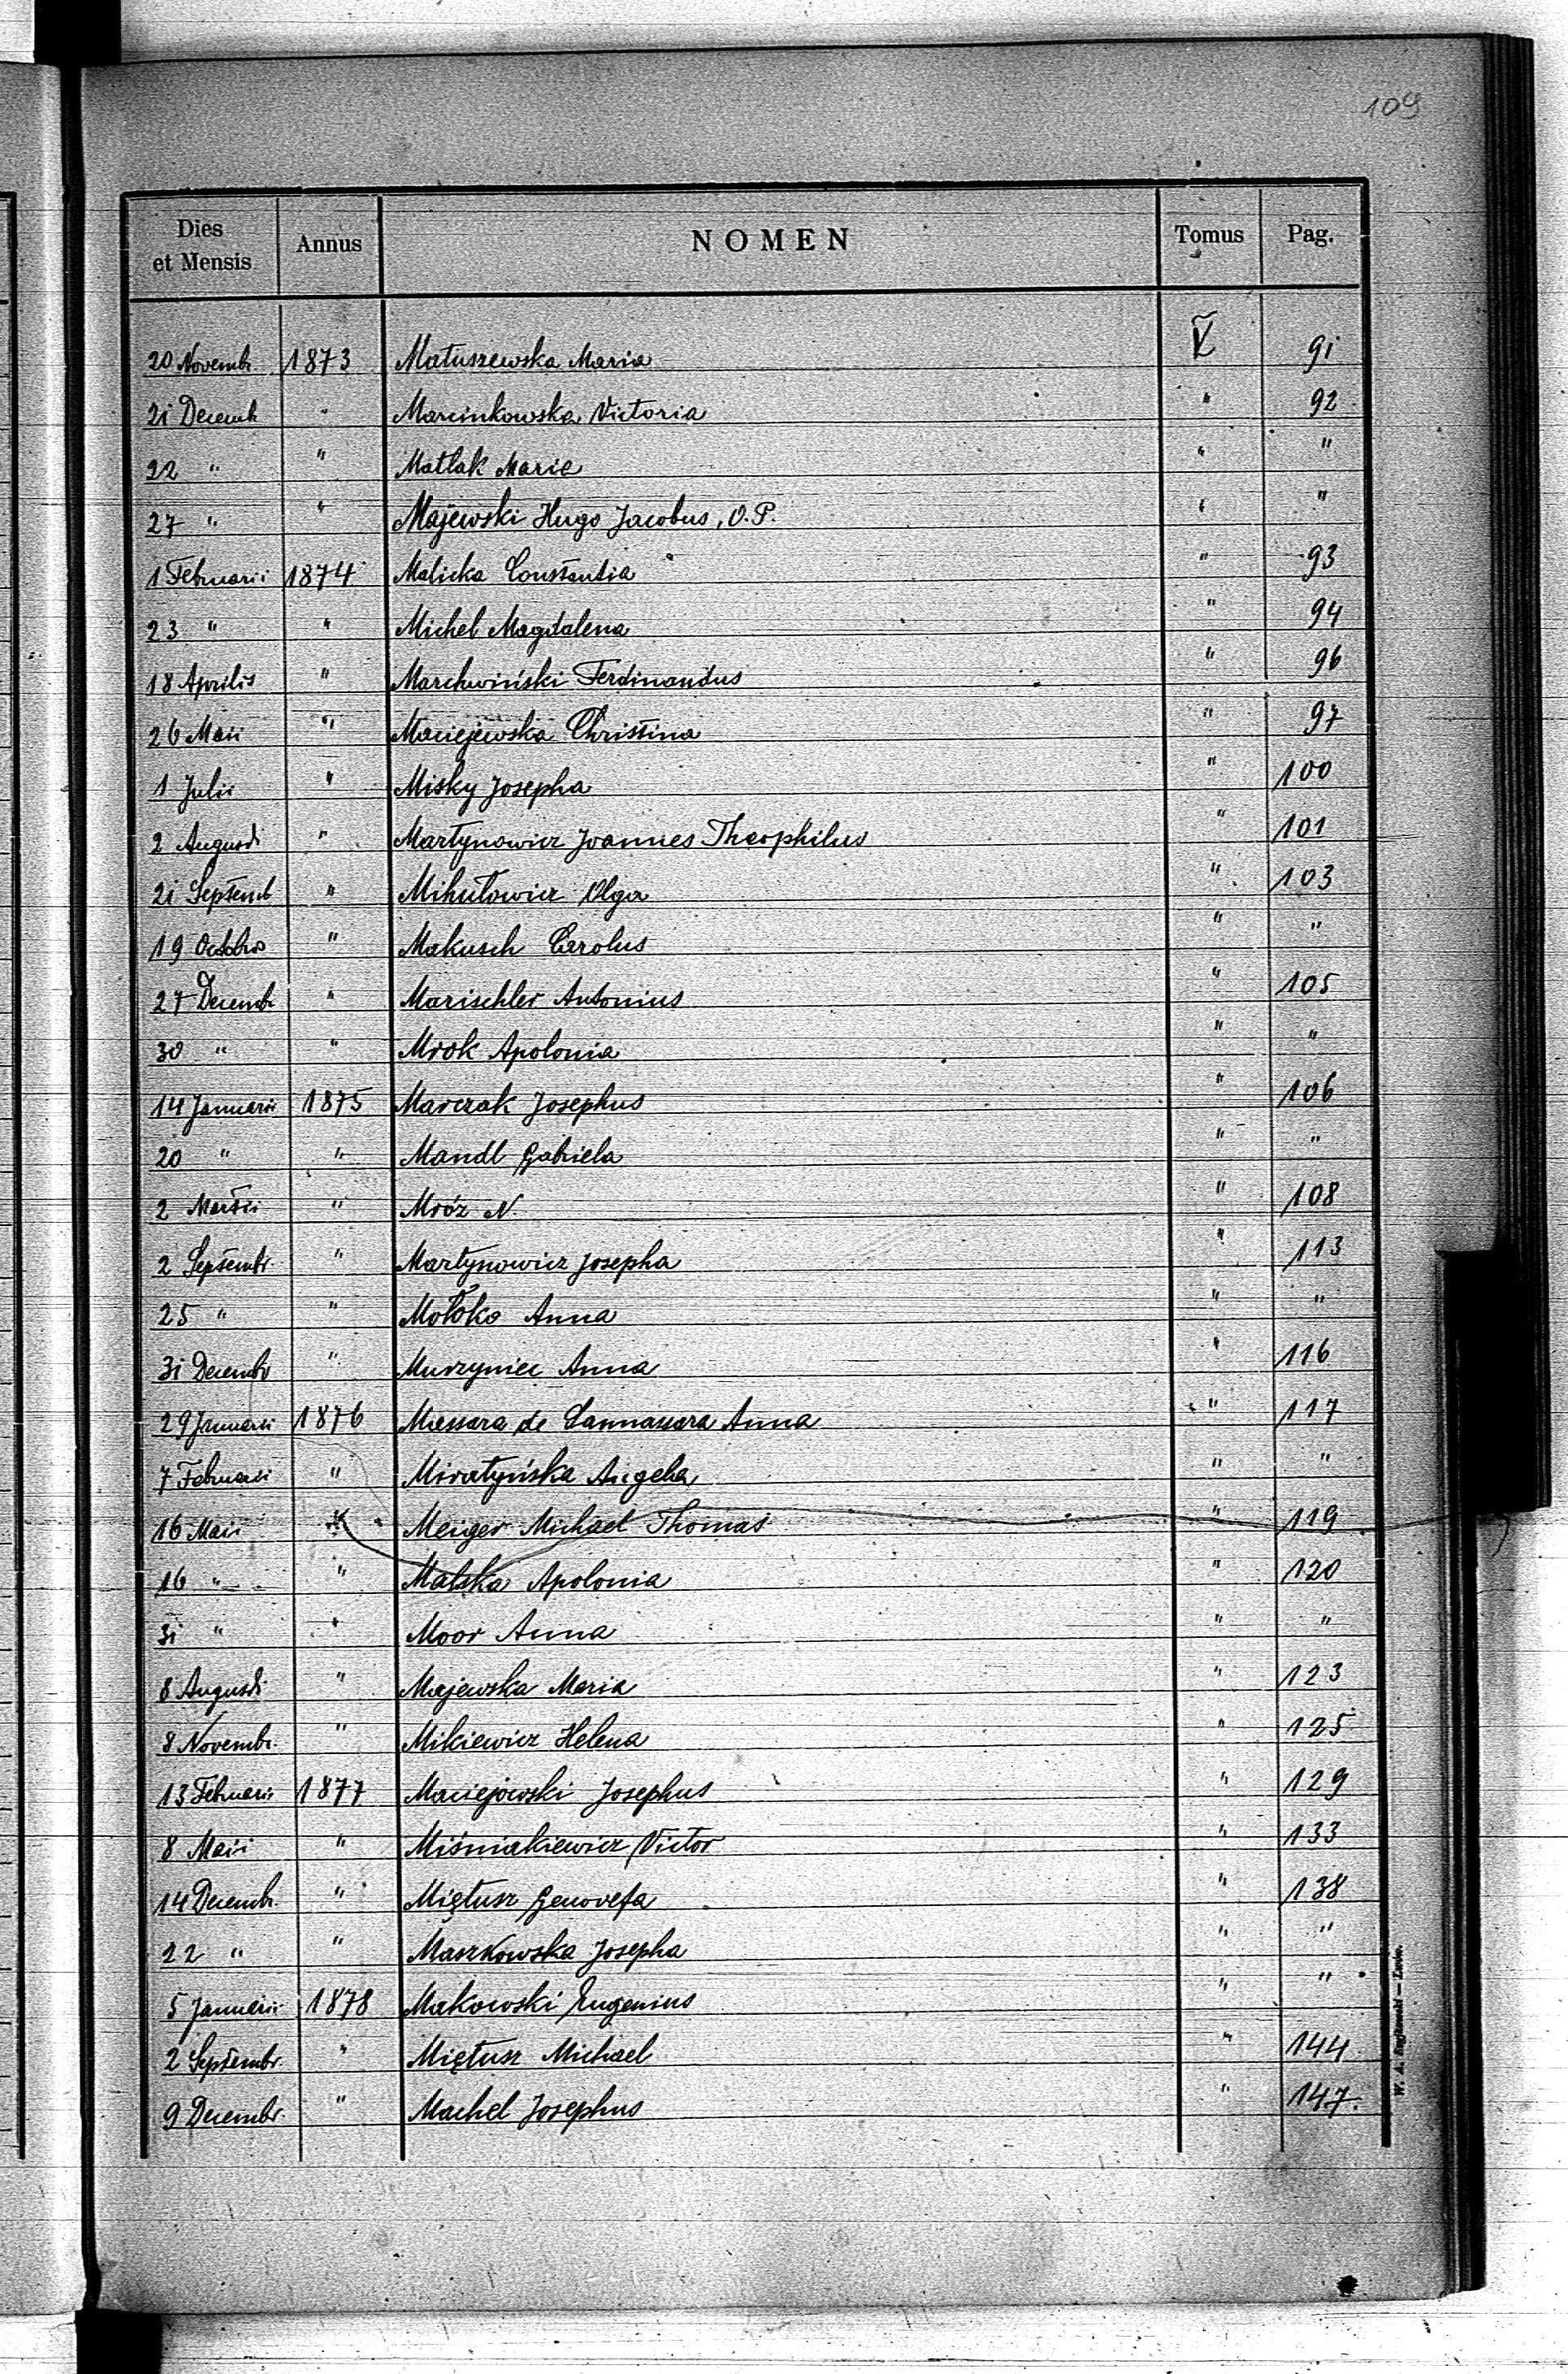 109
Dies et Mensis Annus NOMEN Tomus Pag.
20 Novembr. 1873 Matuszewska Maria V 91
21 Decemb " Marcinkowska Victoria " 92
22 " " Matlak Maria " "
27 " " Majewski Hugo Jacobus, O.P. " "
1 Februarii 1874 Malicka Constantia " 93
23 " " Michel Magdalena " 94
18 Aprilis " Marchwiński Ferdinandus " 96
26 Maii " Maciejewska Christina " 97
1 Julii " Misky Josepha " 100
2 Augusti " Martynowicz Joannes Theophilus " 101
21 Septemb " Mihułowicz Olga " 103
19 Octobris " Makusch Carolus " "
27 Decemb. " Marischler Antonius " 105
30 " " Mrok Apolonia " "
14 Januarii 1875 Marczak Josephus " 106
20 " " Mandl Gabriela " "
2 Martii " Mróz N. " 108
2 Septembr. " Martynowicz Josepha " 113
25 " " Mołoko Anna " "
31 Decembr " Murzyniec Anna " 116
29 Januarii 1876 Massara de Anna " 117
7 Februarii " Miratyńska Angela " "
16 Maii " Meiger Michael Thomas " 119
16 " " Malska Apolonia " 120
31 " " Moor Anna " "
8 Augusti " Majewska Maria " 123
8 Novembr. " Mikiewicz Helena " 125
13 Februarii 1877 Maciejowski Josephus " 129
8 Maii " Miśniakiewicz Victor " 133
14 Decembr. " Miętusz Genovefa " 138
22 " " Maszkowska Josepha " "
5 Januarii 1878 Makowski Eugenius " "
2 Septembr. " Miętusz Michael " 144
9 Decembr. " Machel Josephus " 147.